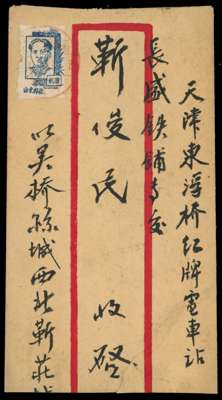 天津東浮桥红牌電車站
長盛铁铺专交
靳俊民 收啓
吴桥縣城西北靳莊